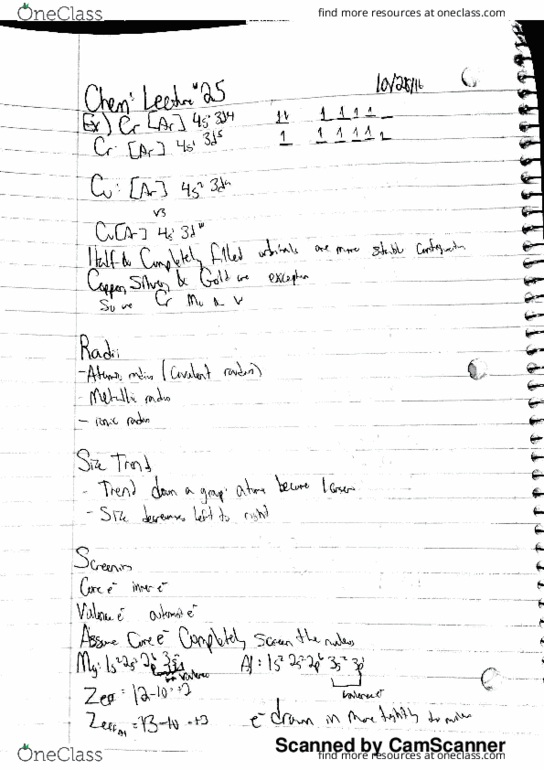 OneClass
find more resources at oneclass.com
10/28/16
Chem: Lecture #25
Ex) Cr [Ar] 4s² 3d4
Cr: [Ar] 4s¹ 3d⁵
Cu: [Ar] 4s² 3d⁹
vs
Cu[Ar] 4s¹ 3d¹⁰
Half & Completely filled orbitals are more stable configuration
Copper, Silver, & Gold are exception
So are Cr Mo
Radii
- Atomic radius (Covalent radius)
- Metallic radius
- ionic radius
Size Trend
- Trend down a group: atoms become larger
- Size decreases left to right
Screening
Core e⁻ inner e⁻
Valence e⁻ outermost e⁻
Assume Core e⁻ Completely screen the nucleus
Mg: 1s² 2s² 2p⁶ 3s² Al: 1s² 2s² 2p⁶ 3s² 3p
valence valence e⁻
Zeff = 12-10 = +2
Zeff = 13-10 = +3 e⁻ drawn in more tightly to nucleus
Scanned by CamScanner
OneClass
find more resources at oneclass.com